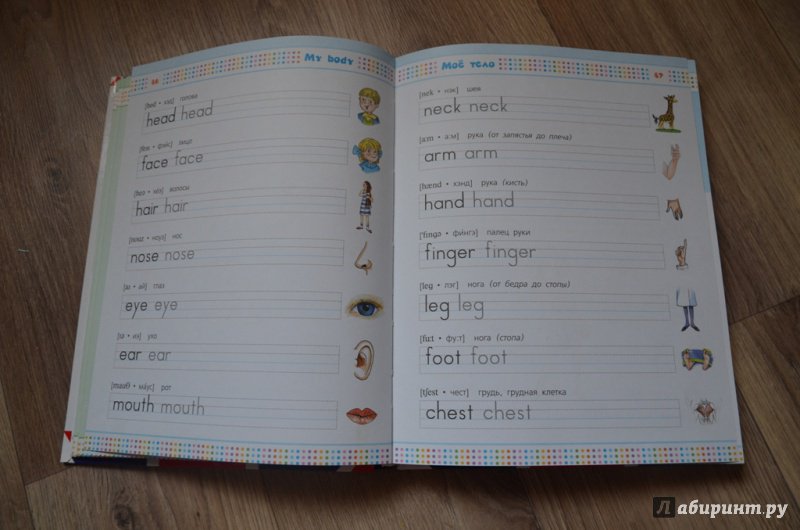 66 My body
[hed • хэд] голова
head head
[feɪs • фэйс] лицо
face face
[heə • хéə] волосы
hair hair
[nəuz • ноуз] нос
nose nose
[aɪ • ай] глаз
eye eye
[ɪə • иэ] ухо
ear ear
[mauθ • мáус] рот
mouth mouth
Моё тело 67
[nek • нэк] шея
neck neck
[a:m • а:м] рука (от запястья до плеча)
arm arm
[hænd • хэнд] рука (кисть)
hand hand
['fɪŋgə • фи́нгэ] палец руки
finger finger
[leg • лэг] нога (от бедра до стопы)
leg leg
[fu:t • фу:т] нога (стопа)
foot foot
[tʃest • чест] грудь, грудная клетка
chest chest
Лабиринт.ру